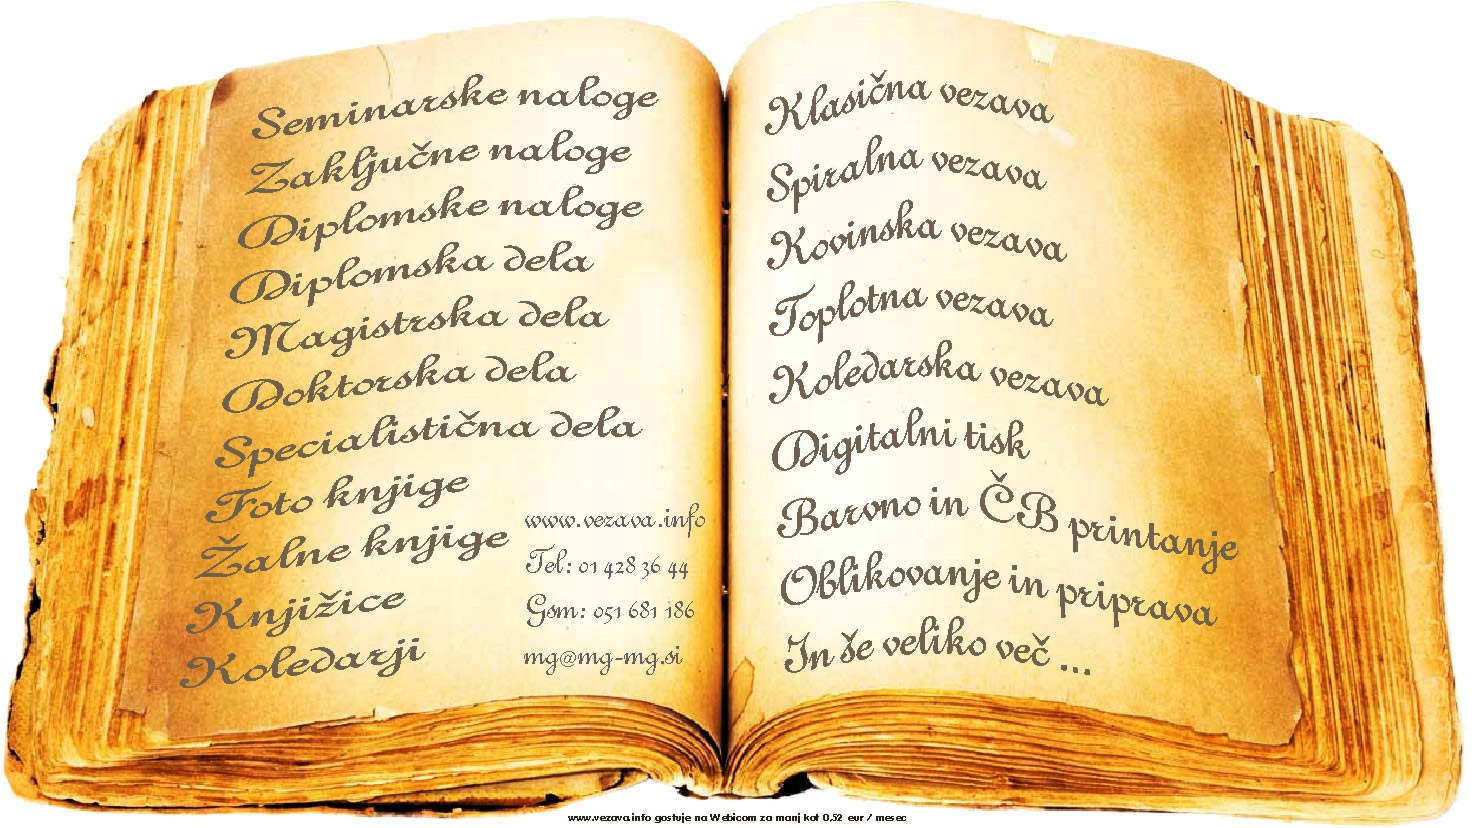 Seminarske naloge
Zaključne naloge
Diplomske naloge
Diplomska dela
Magistrska dela
Doktorska dela
Specialistična dela
Foto knjige
Žalne knjige
Knjižice
Koledarji
www.vezava.info
Tel: 01 428 36 44
Gsm: 051 681 186
mg@mg-mg.si
Klasična vezava
Spiralna vezava
Kovinska vezava
Toplotna vezava
Koledarska vezava
Digitalni tisk
Barvno in ČB printanje
Oblikovanje in priprava
In še veliko več ...
www.vezava.info gostuje na Webicom za manj kot 0,52 eur / mesec